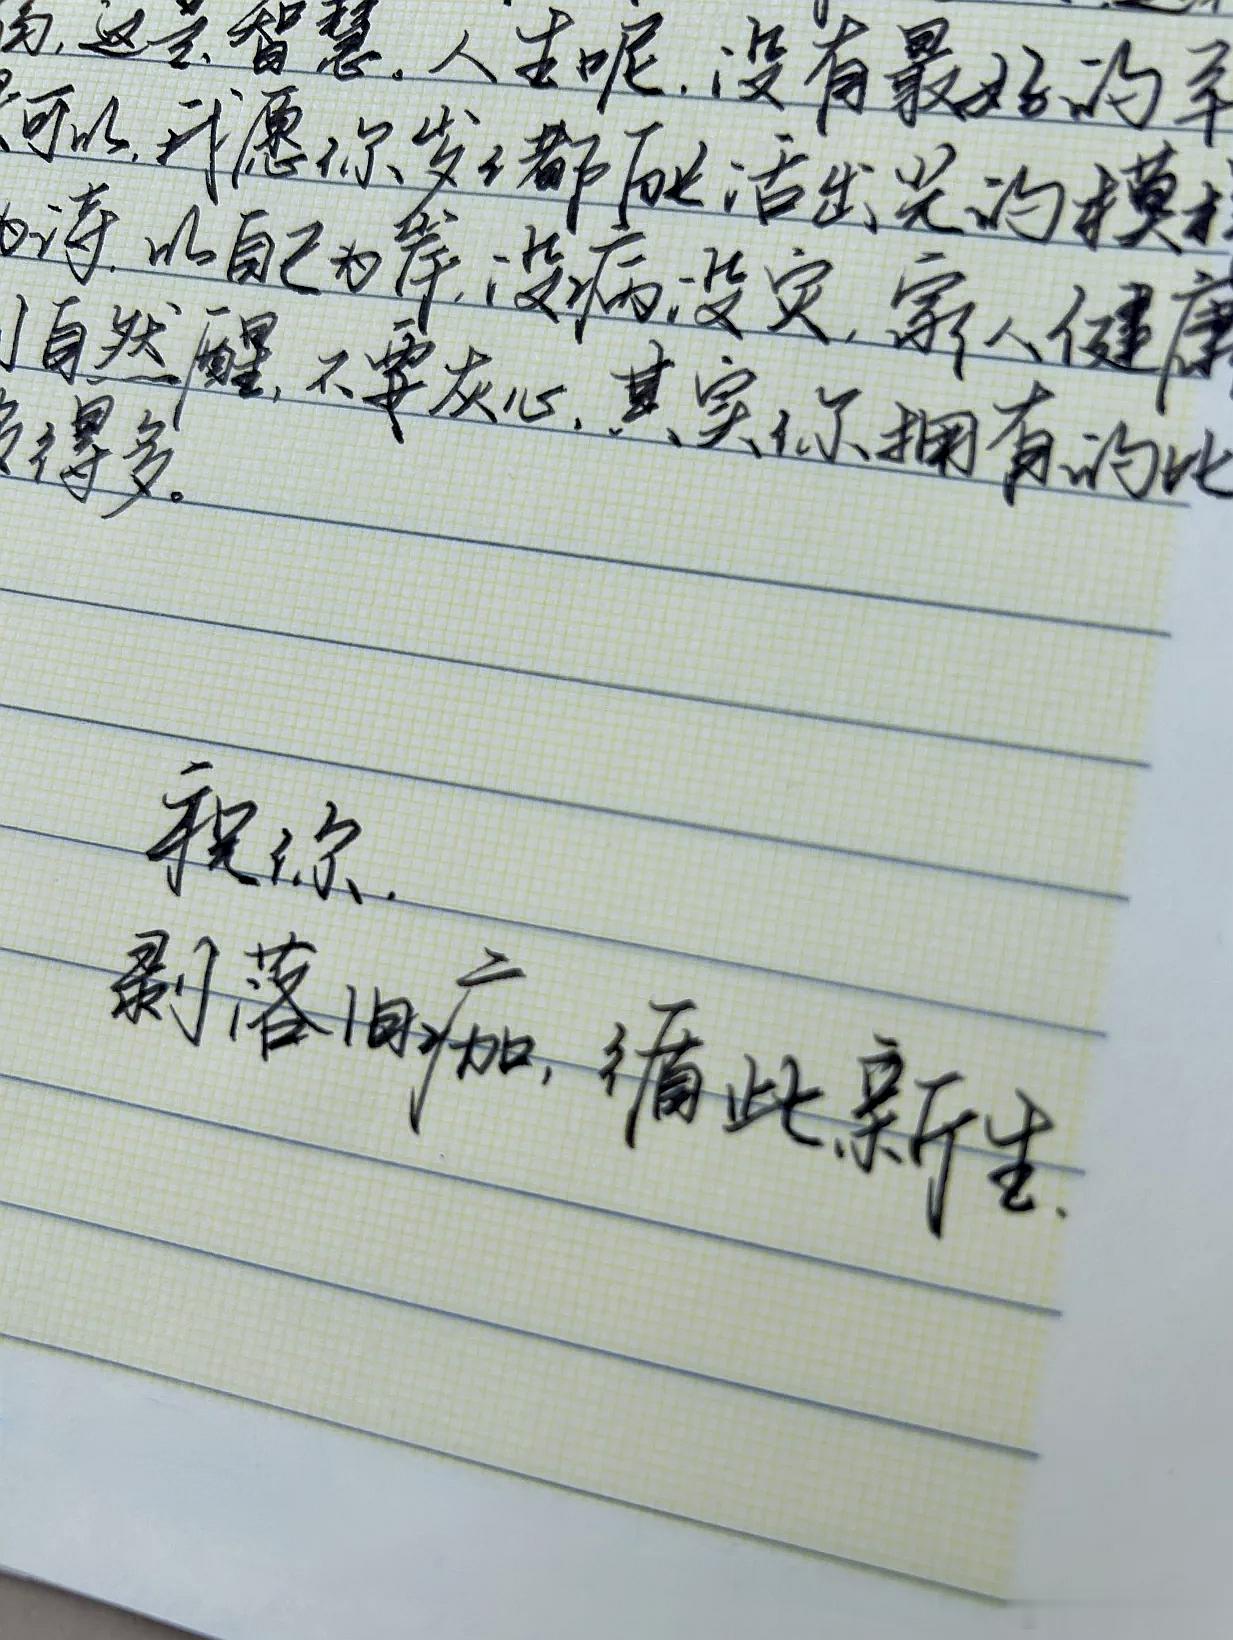 这是智慧。人生呢,没有最好的年
可以,我愿你岁岁都能活出光的模样
为诗,以自己为岸,没病没灾,家人健康
自然醒,不要灰心,其实你拥有的比
得多。
祝你.
剥落旧痂,循此新生.